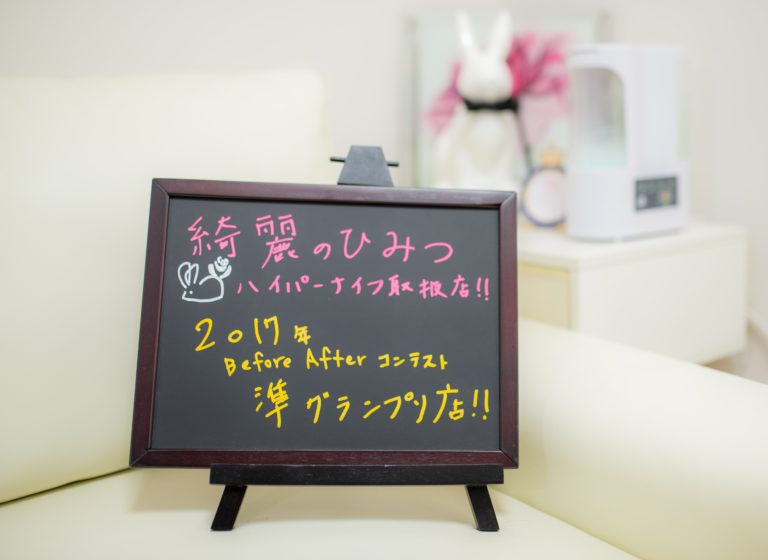 綺麗のひみつ
ハイパーナイフ取扱店!!
2017年
Before After コンテスト
準グランプリ店!!